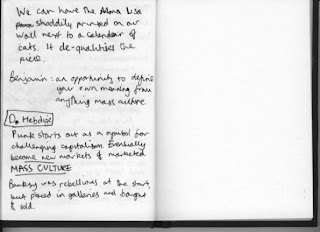 We can have the Mona Lisa
shoddily printed on our
wall next to a calendar of
cats. It de-qualities the
piece.
Benjamin: an opportunity to define
your own meaning from
anything mass culture.
D. Hebdige
Punk starts out as a symbol for
challenging capitalism. Eventually
become new markets & marketed
MASS CULTURE
Banksy was rebellious at the start,
but placed in galleries and bought
& sold.